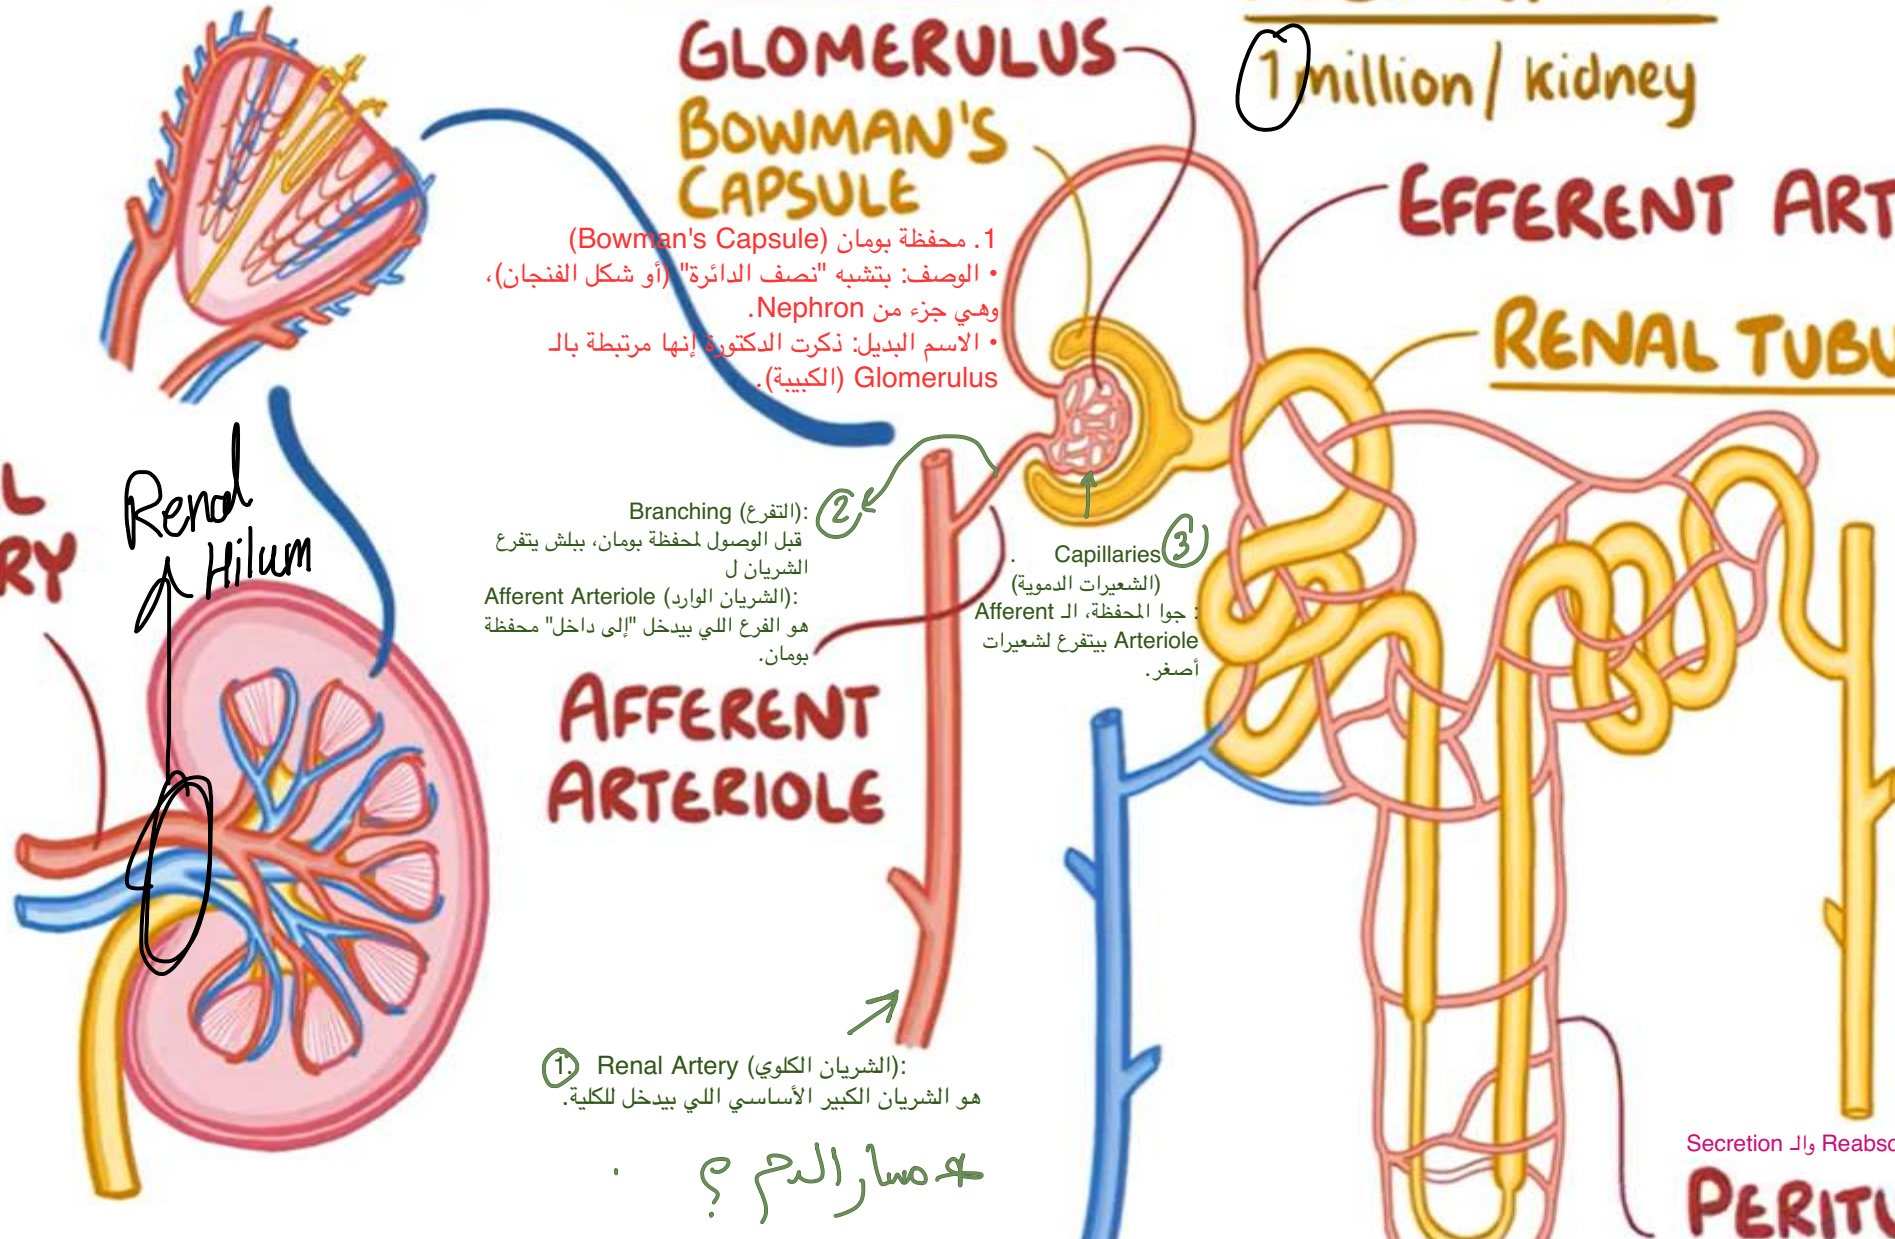 GLOMERULUS
BOWMAN'S
CAPSULE
1 million / kidney
EFFERENT ART
RENAL TUBU
1. محفظة بومان (Bowman's Capsule)
• الوصف: بتشبه "نصف الدائرة" (أو شكل الفنجان)،
وهي جزء من Nephron.
• الاسم البديل: ذكرت الدكتورة إنها مرتبطة بالـ
Glomerulus (الكبيبة).
L
RY
Renal
Hilum
2
Branching (التفرع):
قبل الوصول لمحفظة بومان، ببلش يتفرع
الشريان ل
Afferent Arteriole (الشريان الوارد):
هو الفرع اللي بيدخل "إلى داخل" محفظة
بومان.
3
. Capillaries
(الشعيرات الدموية)
: جوا المحفظة، الـ Afferent
Arteriole بيتفرع لشعيرات
أصغر.
AFFERENT
ARTERIOLE
1. Renal Artery (الشريان الكلوي):
هو الشريان الكبير الأساسي اللي بيدخل للكلية.
* مسار الدم ؟
Secretion والـ Reabso
PERITU